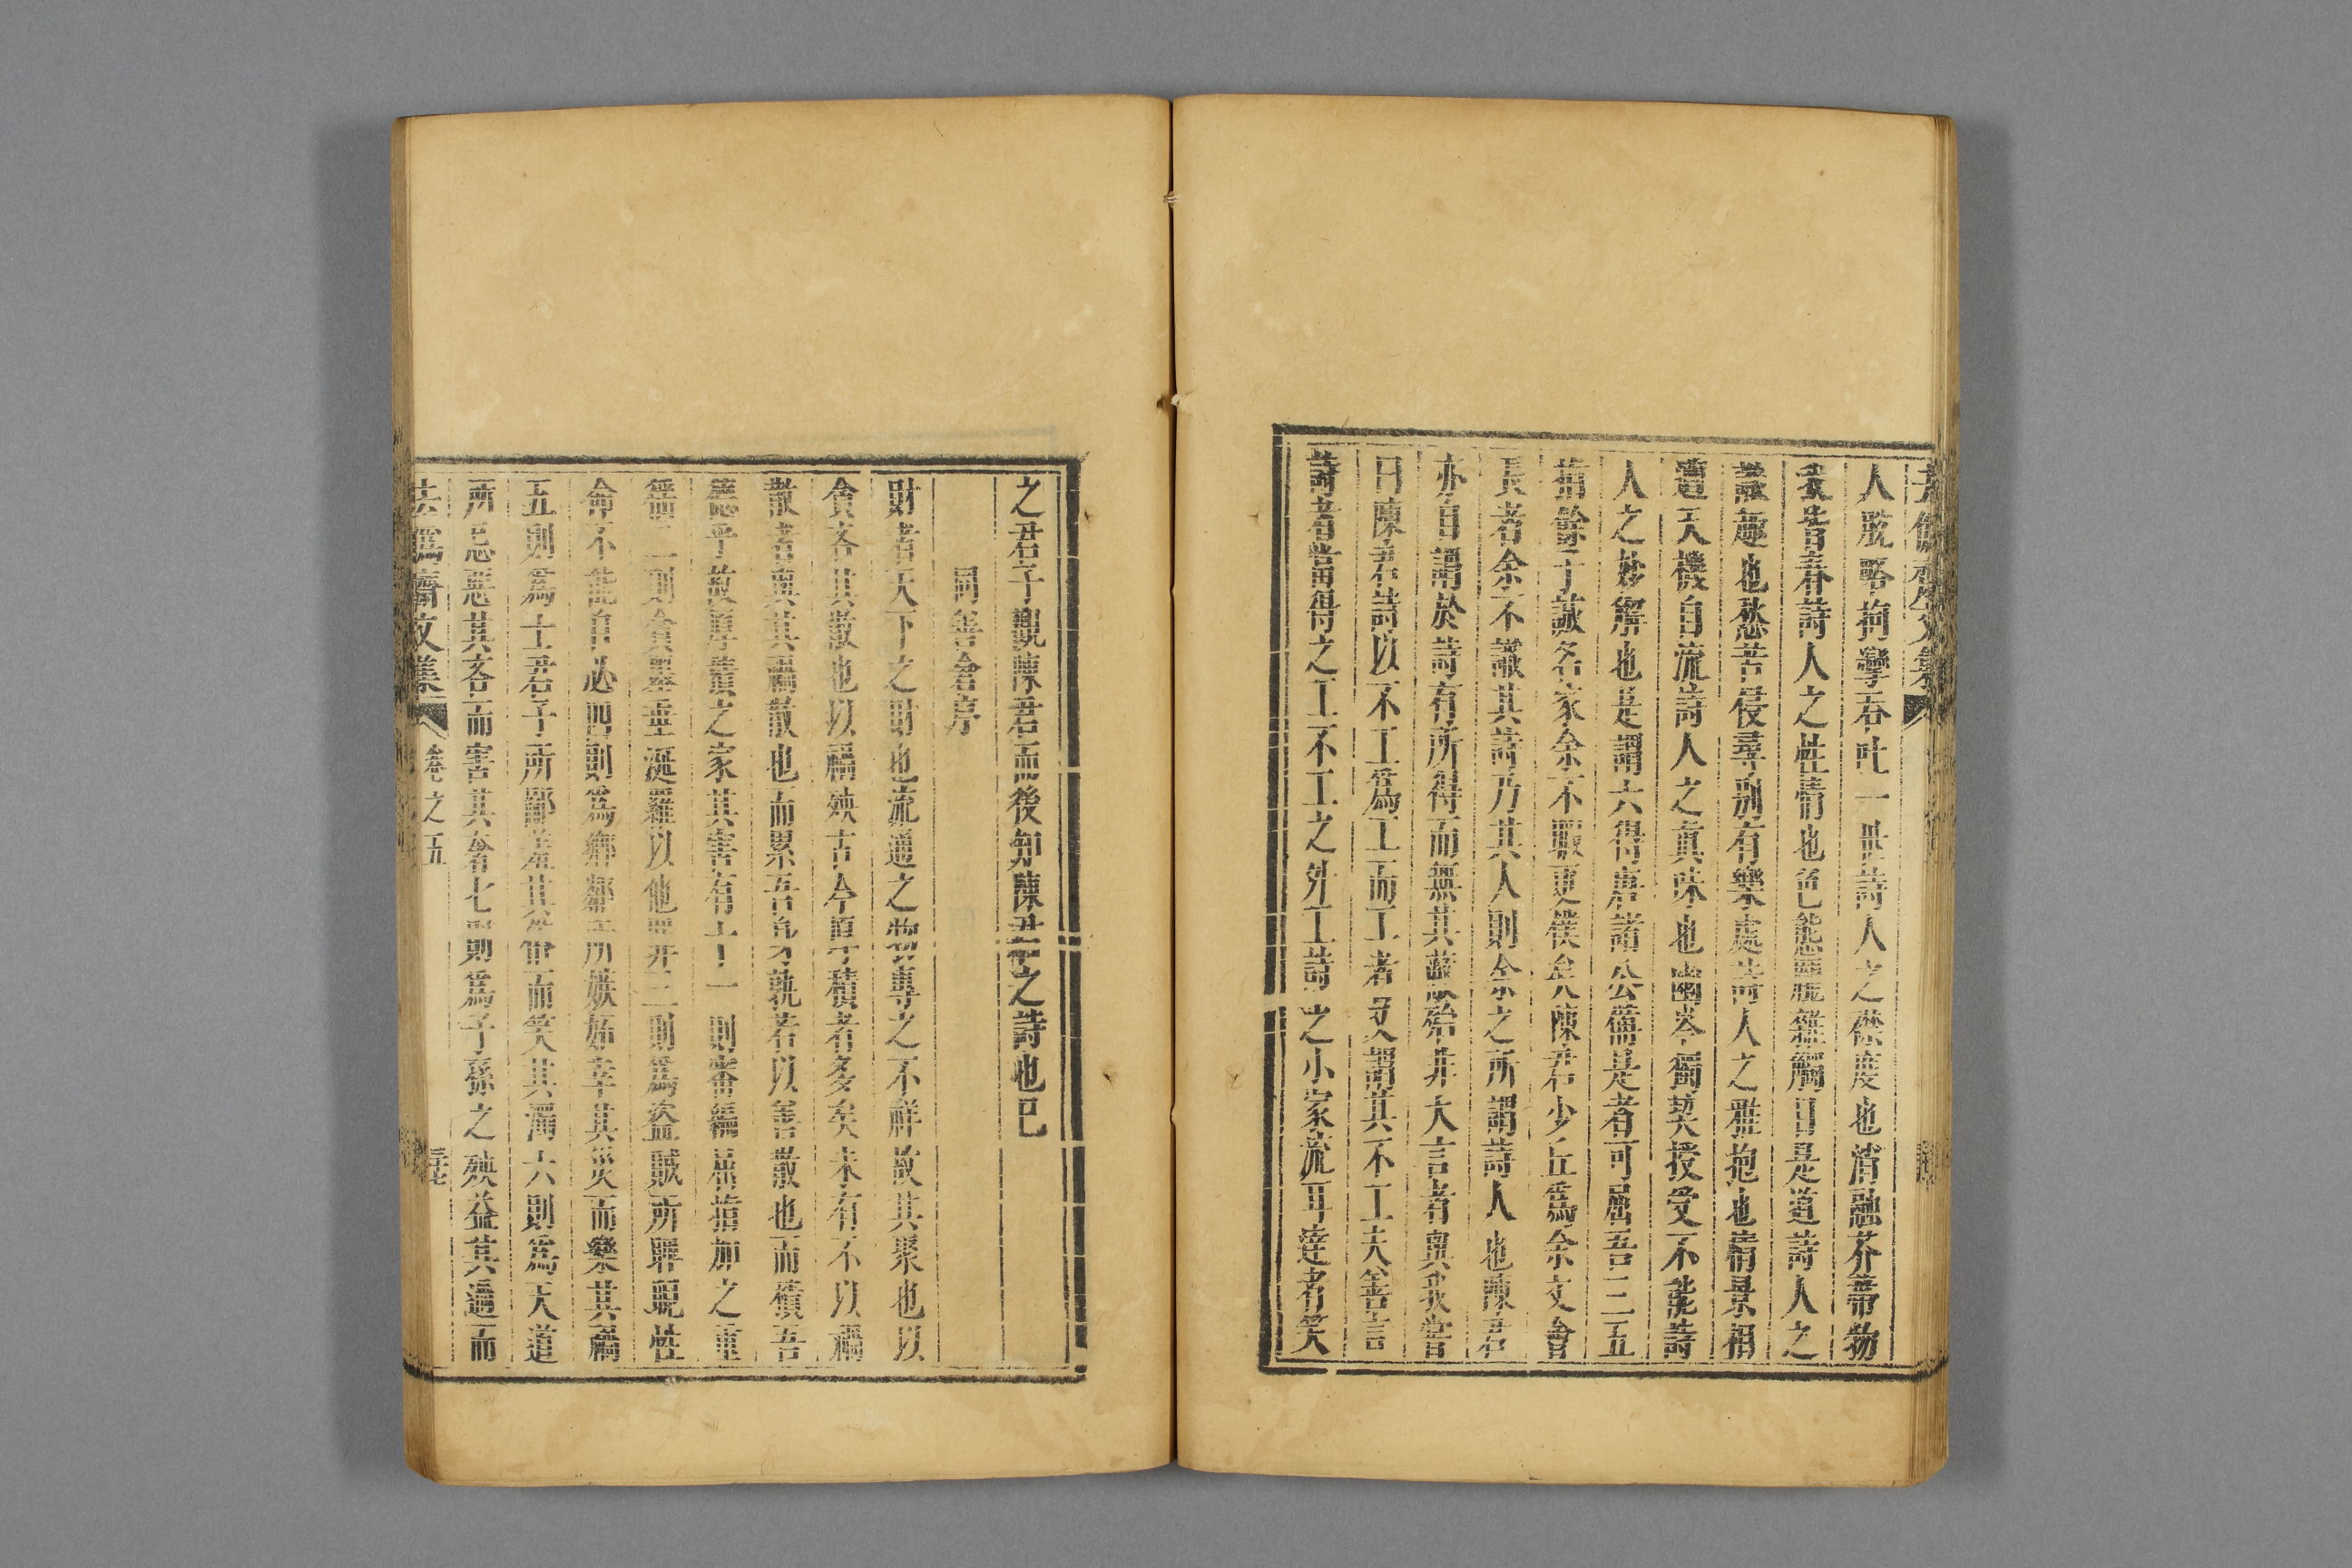 人脫略拘攣吞吐一世詩人之襟度也消融芥蔕物
我皆春詩人之性情也色態罷雜觸目是道詩人之
識趣也愁苦侵尋別有樂處詩人之雅抱也情景相
遭天機自流詩人之真味也幽岑獨契授受不能詩
人之妙解也是謂六得唐諸公備是者可屈吾三五
指餘于諸名家余不暇更僕矣陳君少丘爲余文會
長者余不識其詩乃其人則余之所謂詩人也陳君
亦自謂於詩有所得而無其蔽殆非大言者與我嘗
曰陳君詩以不工爲工而工者又謂其不工夫善言
詩者當得之工不工之外工詩之小家流耳達者笑
之君子觀陳君而後知陳君之詩也已
同善會序
財者天下之財也流通之物專之不祥故其聚也以
貪吝其散也以禍殃古今原乎積者多矣未有不以
散者與其禍散也而累吾身孰若以善散也而積吾
德乎故厚積之家其害有十一則審編差猫加之重
篚二則貪墨垂涎羅以他罪三則爲盜賊所睥睨性
命不能自必四則爲鄉鄰所嫉妬幸其災而樂其禍
五則爲士君子所鄙羞其俗而笑其濁六則爲天道
所忌惡其吝而害其奢七則爲子孫之殃益其過而
去僞齋文集
卷之五